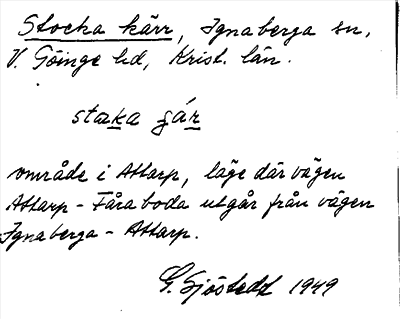 Stocka kärr, Ignaberga sn,
V. Göinge hd, Krist. län.
staka gár
område i Attarp, läge där vägen
Attarp - Fåraboda utgår från vägen
Ignaberga - Attarp.
G. Sjöstedt 1949